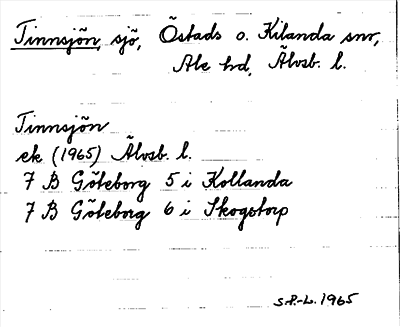 Tinnsjön, sjö, Östads o. Kilanda snr,
Ale hd, Älvsb. l.
Tinnsjön
ek (1965) Älvsb. l.
7 B Göteborg 5 i Kollanda
7 B Göteborg 6 i Skogstorp
S.P.-L. 1965